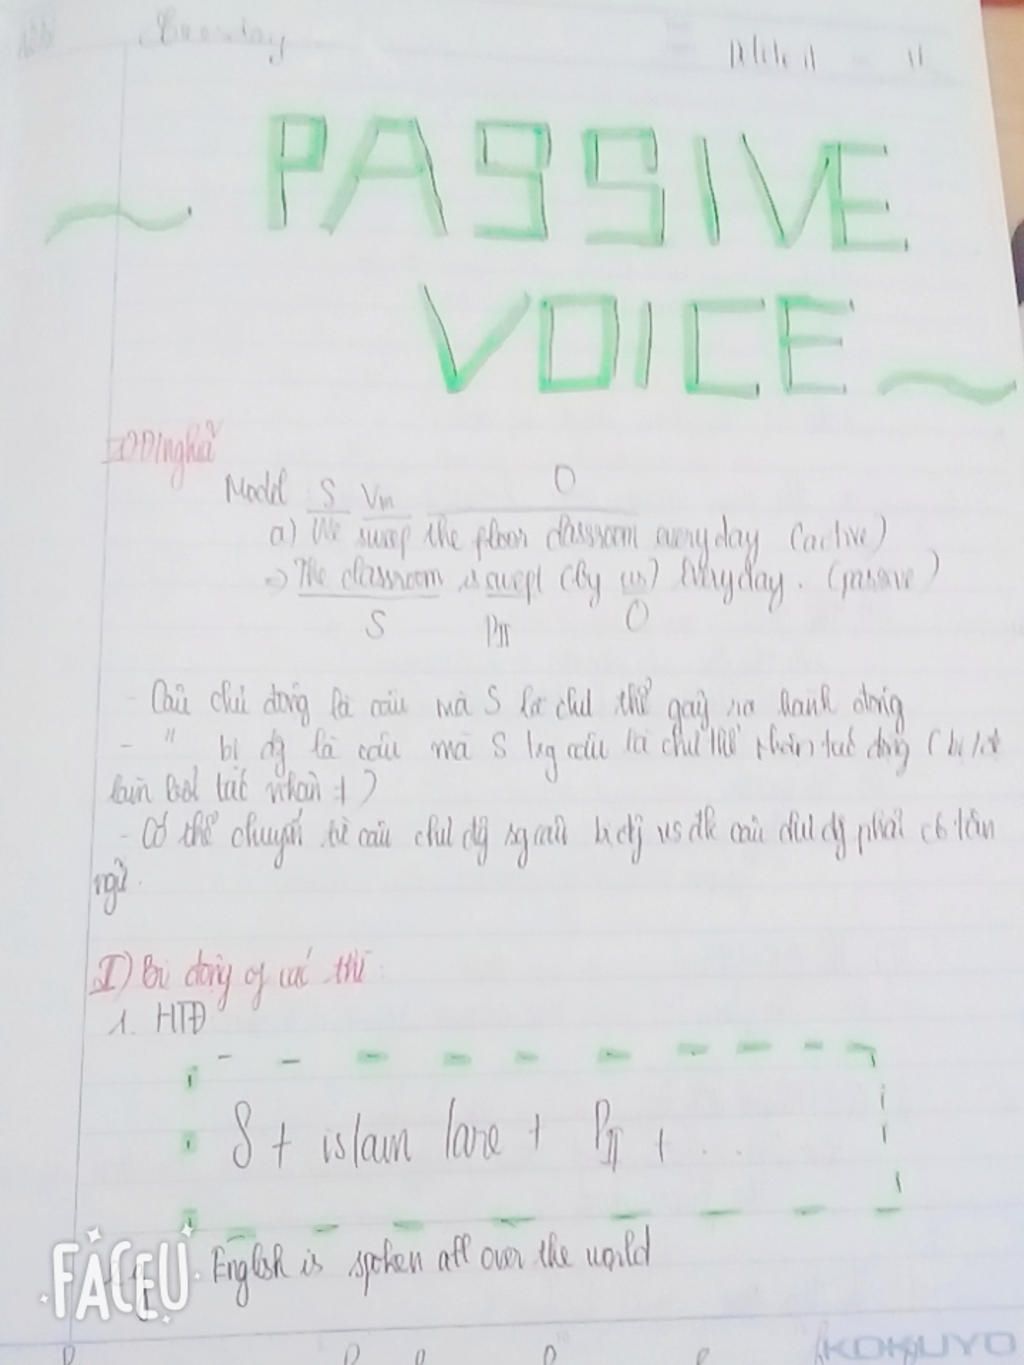 PASSIVE
VOICE
I) Đ/nghĩa
Model S Vm O
a) We sweep the floor classroom everyday (active)
=> The classroom is swept (by us) everyday. (passive)
S PII O
- Câu chủ động là câu mà S là chủ thể gây ra hành động
- " bị đg là câu mà S trg câu là chủ thể nhận tác động (bị
làm bởi tác nhân ≠)
- Có thể chuyển từ câu chủ đg sg câu bị đg vs đk câu chủ đg phải có tân
ngữ.
II) Bị động of các thì:
1. HTĐ
S + is/am/are + PII + ...
English is spoken all over the world
FACEU
KOKUYO